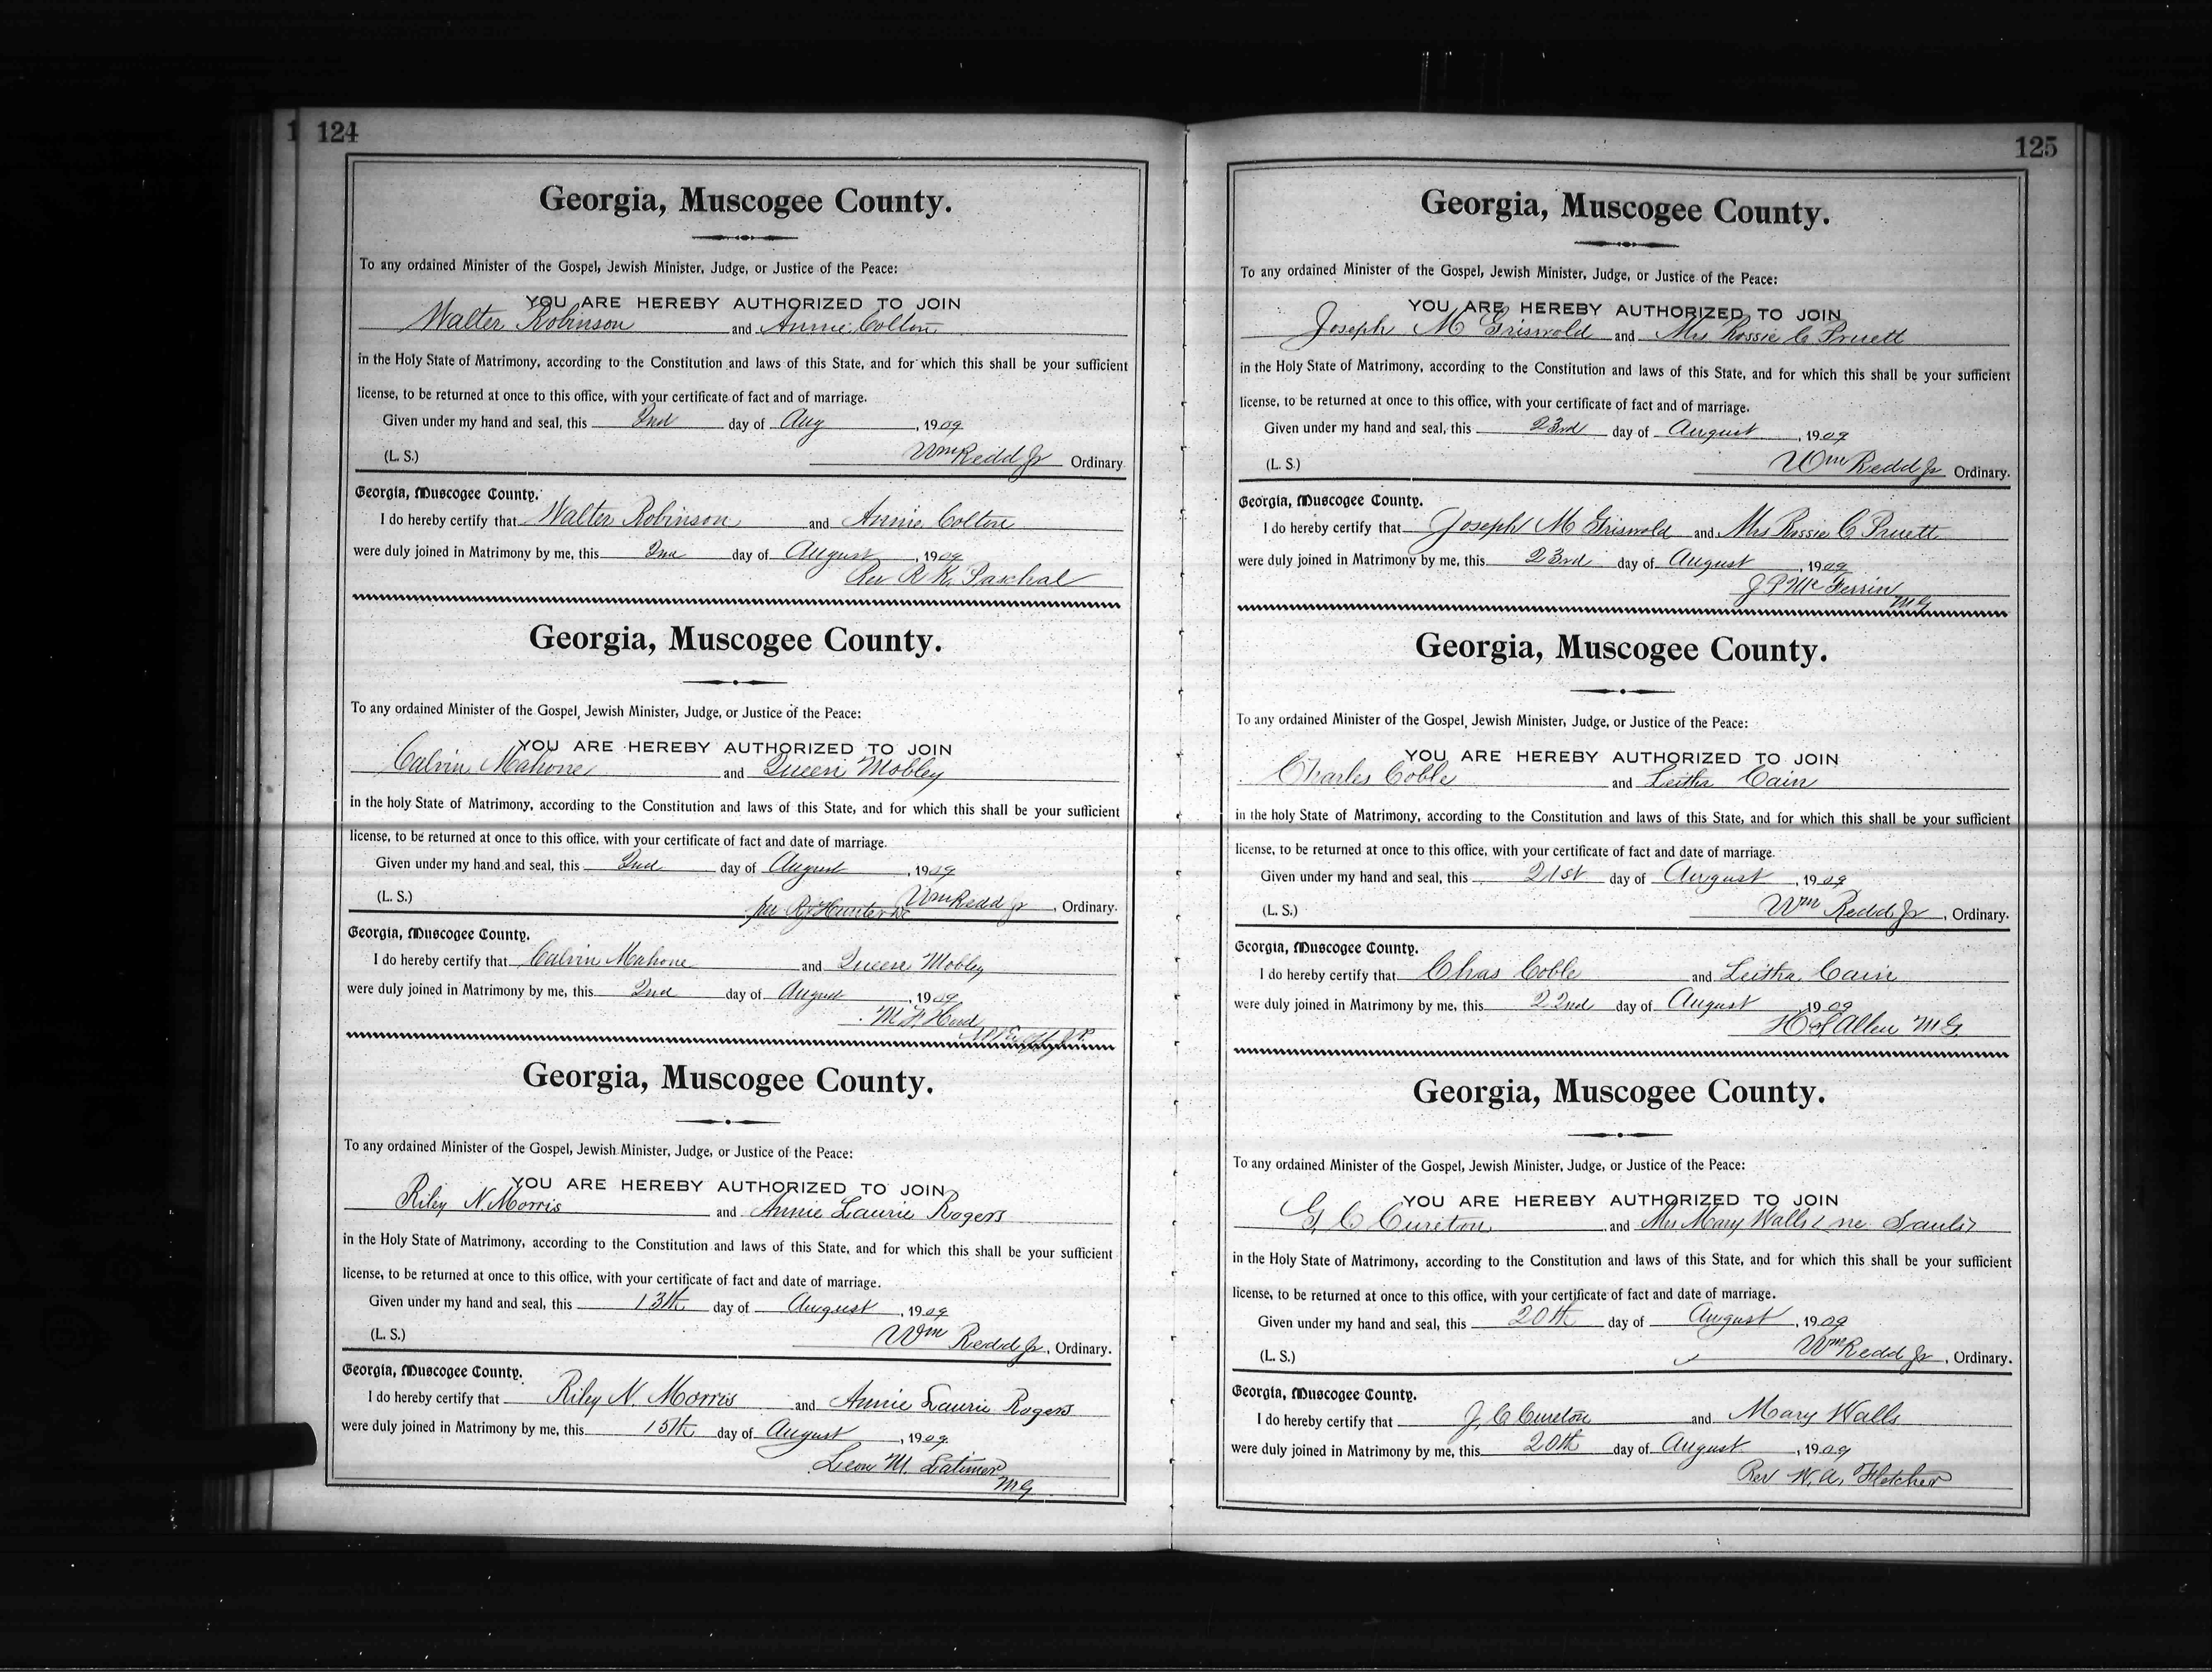 1 124
Georgia, Muscogee County.
To any ordained Minister of the Gospel, Jewish Minister, Judge, or Justice of the Peace:
YOU ARE HEREBY AUTHORIZED TO JOIN
Walter Robinson and Annie Colton
in the Holy State of Matrimony, according to the Constitution and laws of this State, and for which this shall be your sufficient
license, to be returned at once to this office, with your certificate of fact and of marriage.
Given under my hand and seal, this 2nd day of Aug, 1909
(L. S.) Wm Redd Jr Ordinary.
Georgia, Muscogee County.
I do hereby certify that Walter Robinson and Annie Colton
were duly joined in Matrimony by me, this 2nd day of August, 1909
Rev R. K. Paschal
Georgia, Muscogee County.
To any ordained Minister of the Gospel, Jewish Minister, Judge, or Justice of the Peace:
YOU ARE HEREBY AUTHORIZED TO JOIN
Calvin Mahone and Queen Mobley
in the holy State of Matrimony, according to the Constitution and laws of this State, and for which this shall be your sufficient
license, to be returned at once to this office, with your certificate of fact and date of marriage.
Given under my hand and seal, this 2nd day of August, 1909
(L. S.) per R J Hunter Wm Redd Jr, Ordinary.
Georgia, Muscogee County.
I do hereby certify that Calvin Mahone and Queen Mobley
were duly joined in Matrimony by me, this 2nd day of August, 1909
Georgia, Muscogee County.
To any ordained Minister of the Gospel, Jewish Minister, Judge, or Justice of the Peace:
YOU ARE HEREBY AUTHORIZED TO JOIN
Riley N. Morris and Annie Laurie Rogers
in the Holy State of Matrimony, according to the Constitution and laws of this State, and for which this shall be your sufficient
license, to be returned at once to this office, with your certificate of fact and date of marriage.
Given under my hand and seal, this 13th day of August, 1909
(L. S.) Wm Redd Jr, Ordinary.
Georgia, Muscogee County.
I do hereby certify that Riley N. Morris and Annie Laurie Rogers
were duly joined in Matrimony by me, this 15th day of August, 1909
Leon M. Latimer
MG
125
Georgia, Muscogee County.
To any ordained Minister of the Gospel, Jewish Minister, Judge, or Justice of the Peace:
YOU ARE HEREBY AUTHORIZED TO JOIN
Joseph M Griswold and Mrs Rossie C Pruett
in the Holy State of Matrimony, according to the Constitution and laws of this State, and for which this shall be your sufficient
license, to be returned at once to this office, with your certificate of fact and of marriage.
Given under my hand and seal, this 23rd day of August, 1909
(L. S.) Wm Redd Jr Ordinary.
Georgia, Muscogee County.
I do hereby certify that Joseph M Griswold and Mrs Rossie C Pruett
were duly joined in Matrimony by me, this 23rd day of August, 1909
J P McFerrin
MG
Georgia, Muscogee County.
To any ordained Minister of the Gospel, Jewish Minister, Judge, or Justice of the Peace:
YOU ARE HEREBY AUTHORIZED TO JOIN
Charles Coble and Leitha Cain
in the holy State of Matrimony, according to the Constitution and laws of this State, and for which this shall be your sufficient
license, to be returned at once to this office, with your certificate of fact and date of marriage.
Given under my hand and seal, this 21st day of August, 1909
(L. S.) Wm Redd Jr, Ordinary.
Georgia, Muscogee County.
I do hereby certify that Chas Coble and Leitha Cain
were duly joined in Matrimony by me, this 22nd day of August 1909
H S Allen MG
Georgia, Muscogee County.
To any ordained Minister of the Gospel, Jewish Minister, Judge, or Justice of the Peace:
YOU ARE HEREBY AUTHORIZED TO JOIN
G C Cureton and Mrs Mary Walls (ne Sauls)
in the Holy State of Matrimony, according to the Constitution and laws of this State, and for which this shall be your sufficient
license, to be returned at once to this office, with your certificate of fact and date of marriage.
Given under my hand and seal, this 20th day of August, 1909
(L. S.) Wm Redd Jr, Ordinary.
Georgia, Muscogee County.
I do hereby certify that J, C Cureton and Mary Walls
were duly joined in Matrimony by me, this 20th day of August, 1909
Rev W. A. Fletcher